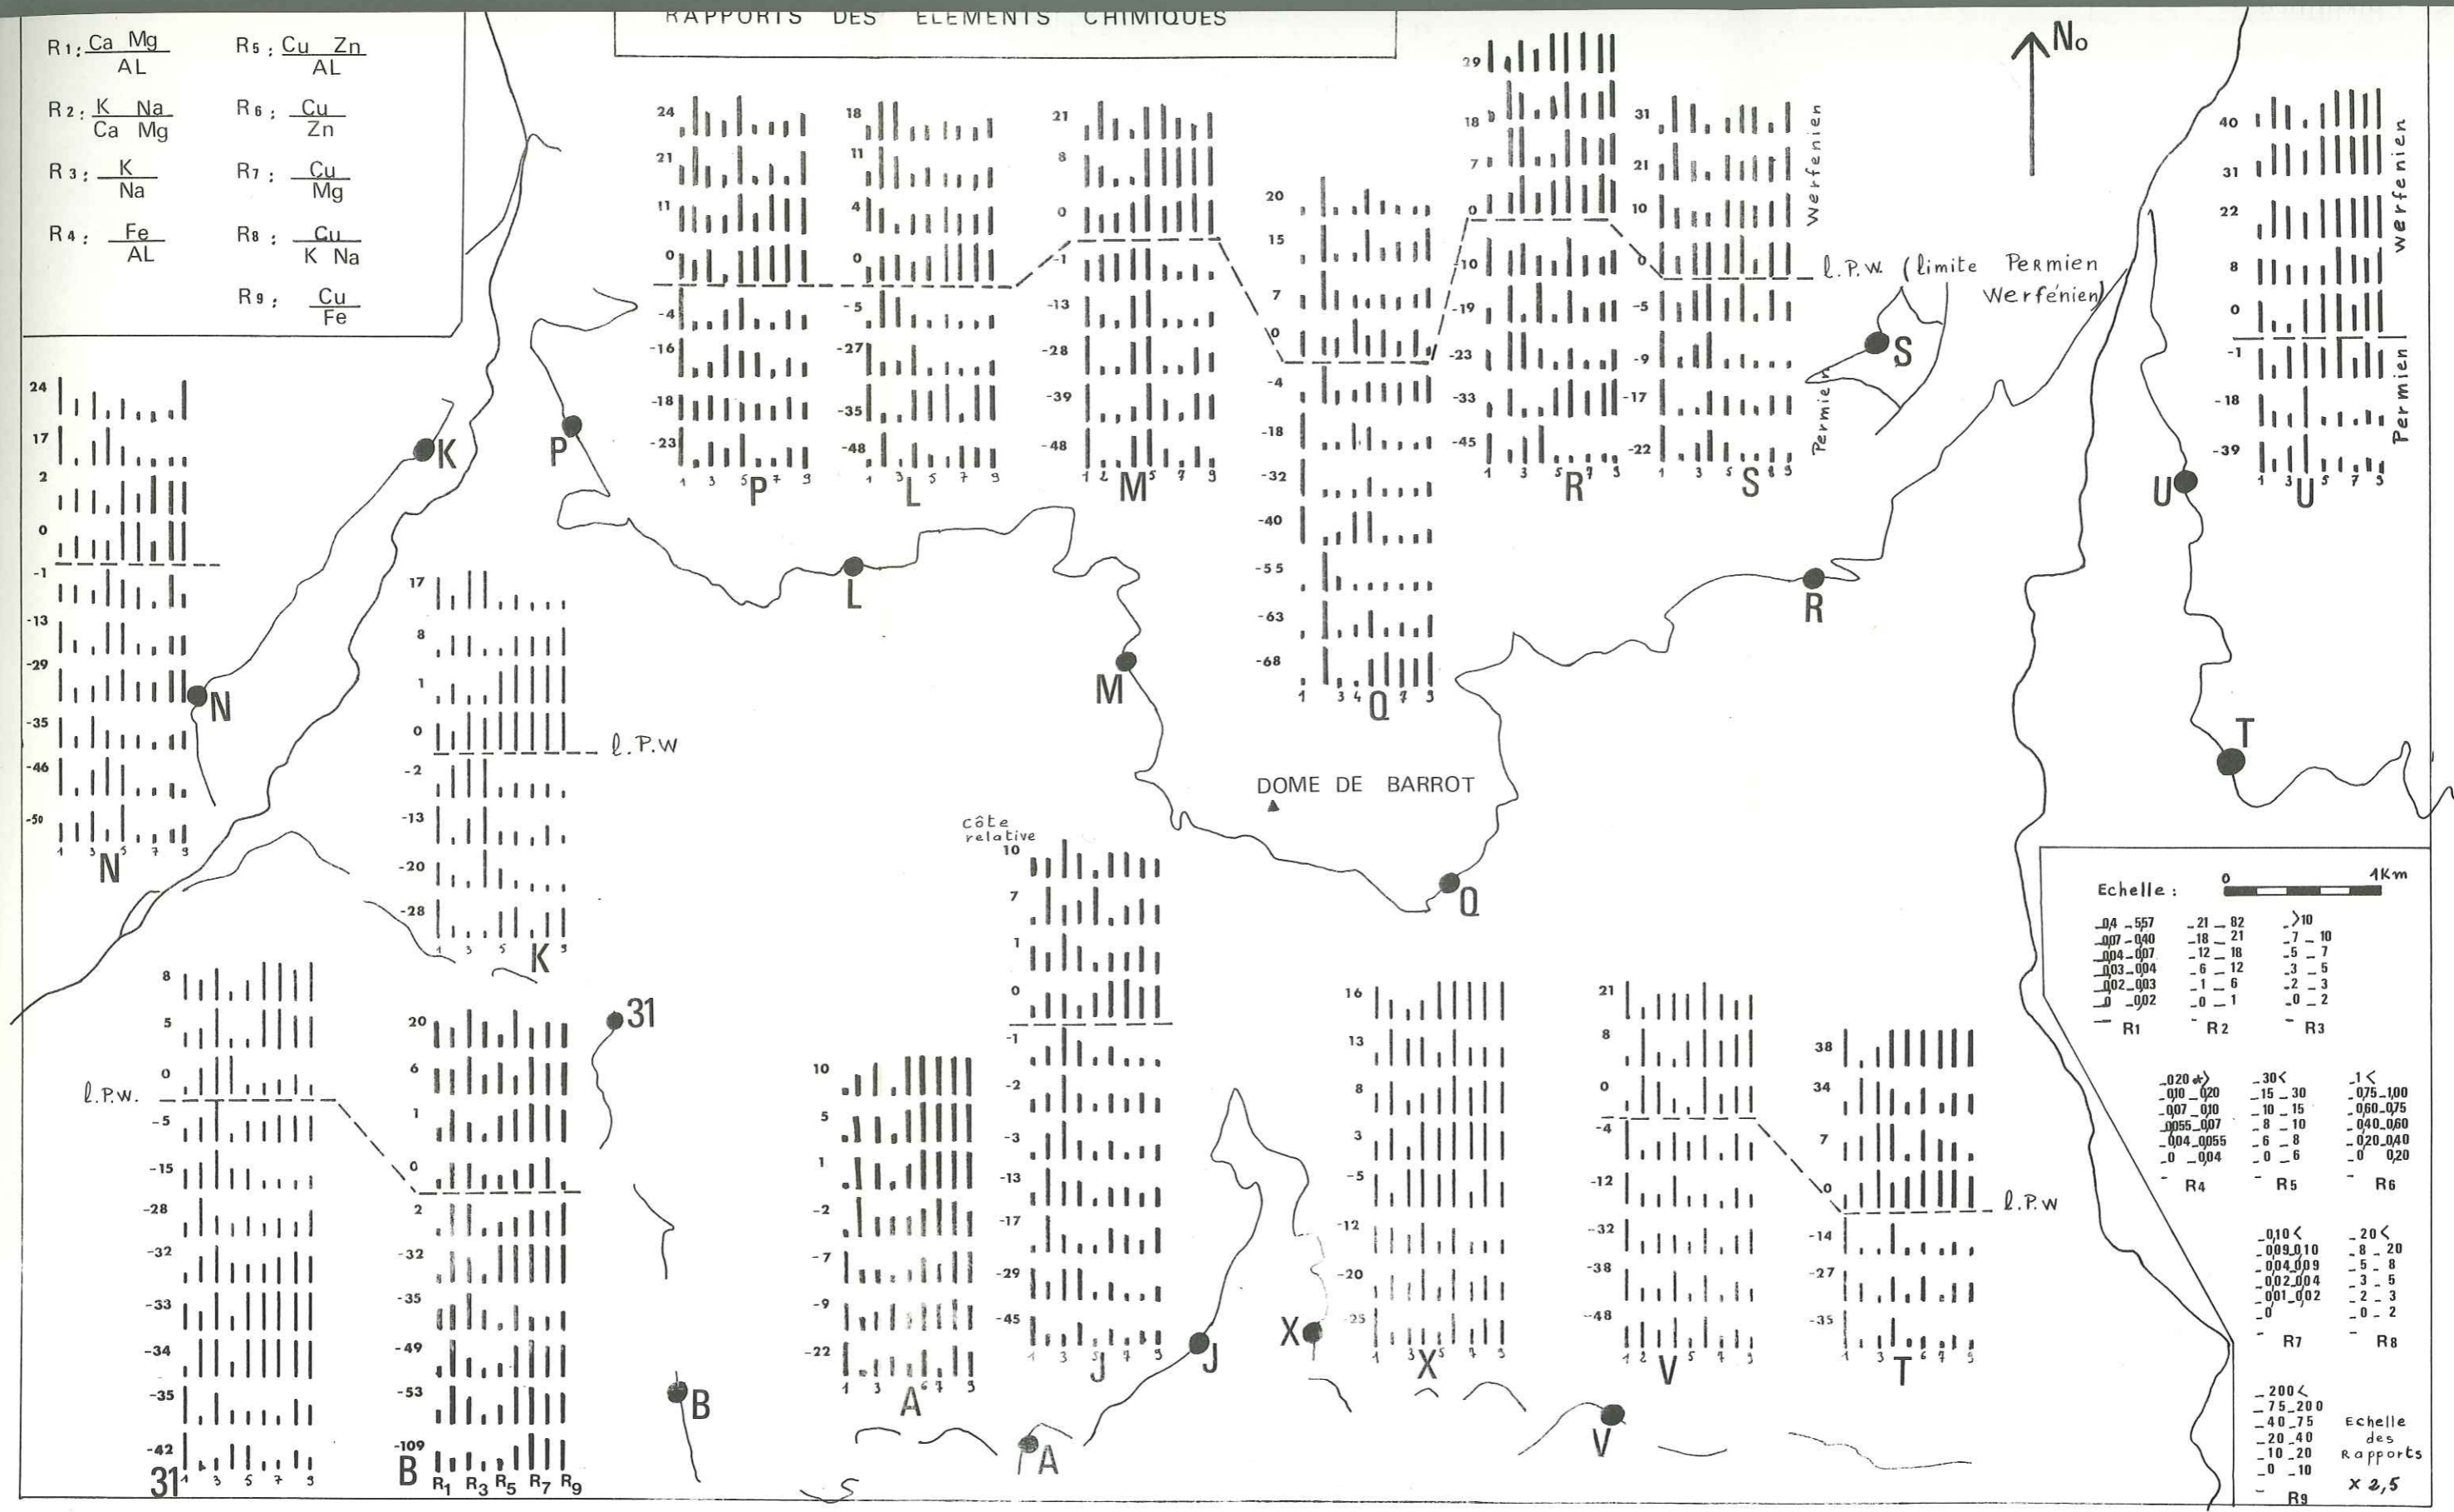 RAPPORTS DES ELEMENTS CHIMIQUES
R1: Ca Mg
AL
R2: K Na
Ca Mg
R3: K
Na
R4: Fe
AL
R5: Cu Zn
AL
R6: Cu
Zn
R7: Cu
Mg
R8: Cu
K Na
R9: Cu
Fe
No
24
21
11
0
-4
-16
-18
-23
1 3 5 7 9
P
18
11
4
0
-5
-27
-35
-48
1 3 5 7 9
L
21
8
0
-1
-13
-28
-39
-48
1 2 5 7 9
M
20
15
7
0
-4
-18
-32
-40
-55
-63
-68
1 3 4 7 9
Q
29
18
7
0
-10
-19
-23
-33
-45
1 3 5 7 9
R
31
21
10
0
-5
-9
-17
-22
1 3 5 8 9
S
Werfenien
Permien
l.P.W. (limite Permien
Werfénien)
40
31
22
8
0
-1
-18
-39
1 3 5 7 9
U
Werfenien
Permien
24
17
2
0
-1
-13
-29
-35
-46
-50
1 3 5 7 9
N
17
8
1
0
-2
-13
-20
-28
1 3 5 9
K
l.P.W
K
P
N
L
M
S
R
U
T
Q
DOME DE BARROT
8
5
0
-5
-15
-28
-32
-33
-34
-35
-42
1 3 5 7 9
31
l.P.W.
20
6
1
0
2
-32
-35
-49
-53
-109
B
R1 R3 R5 R7 R9
31
B
10
5
1
-2
-7
-9
-22
1 3 6 7 9
A
Côte
relative
10
7
1
0
-1
-2
-3
-13
-17
-29
-45
1 3 5 7 9
J
A
J
X
V
16
13
8
3
-5
-12
-20
-25
1 3 5 7 9
X
21
8
0
-4
-12
-32
-38
-48
1 2 5 7 9
V
38
34
7
0
-14
-27
-35
1 3 6 7 9
T
l.P.W
Echelle : 0 1Km
_0,4 _ 5,57
_0,07 _ 0,40
_0,04 _ 0,07
_0,03 _ 0,04
_0,02 _ 0,03
_0 _ 0,02
R1
_21 _ 82
_18 _ 21
_12 _ 18
_6 _ 12
_1 _ 6
_0 _ 1
R2
_>10
_7 _ 10
_5 _ 7
_3 _ 5
_2 _ 3
_0 _ 2
R3
_0,20 et>
_0,10 _ 0,20
_0,07 _ 0,10
_0,055 _ 0,07
_0,04 _ 0,055
_0 _ 0,04
R4
_30<
_15 _ 30
_10 _ 15
_8 _ 10
_6 _ 8
_0 _ 6
R5
_1<
_0,75 _ 1,00
_0,60 _ 0,75
_0,40 _ 0,60
_0,20 _ 0,40
_0 0,20
R6
_0,10<
_0,09 0,10
_0,04 0,09
_0,02 0,04
_0,01 _ 0,02
_0
R7
_20<
_8 _ 20
_5 _ 8
_3 _ 5
_2 _ 3
_0 _ 2
R8
_200<
_75 _ 200
_40 _ 75
_20 _ 40
_10 _ 20
_0 _ 10
R9
Echelle
des
Rapports
x 2,5